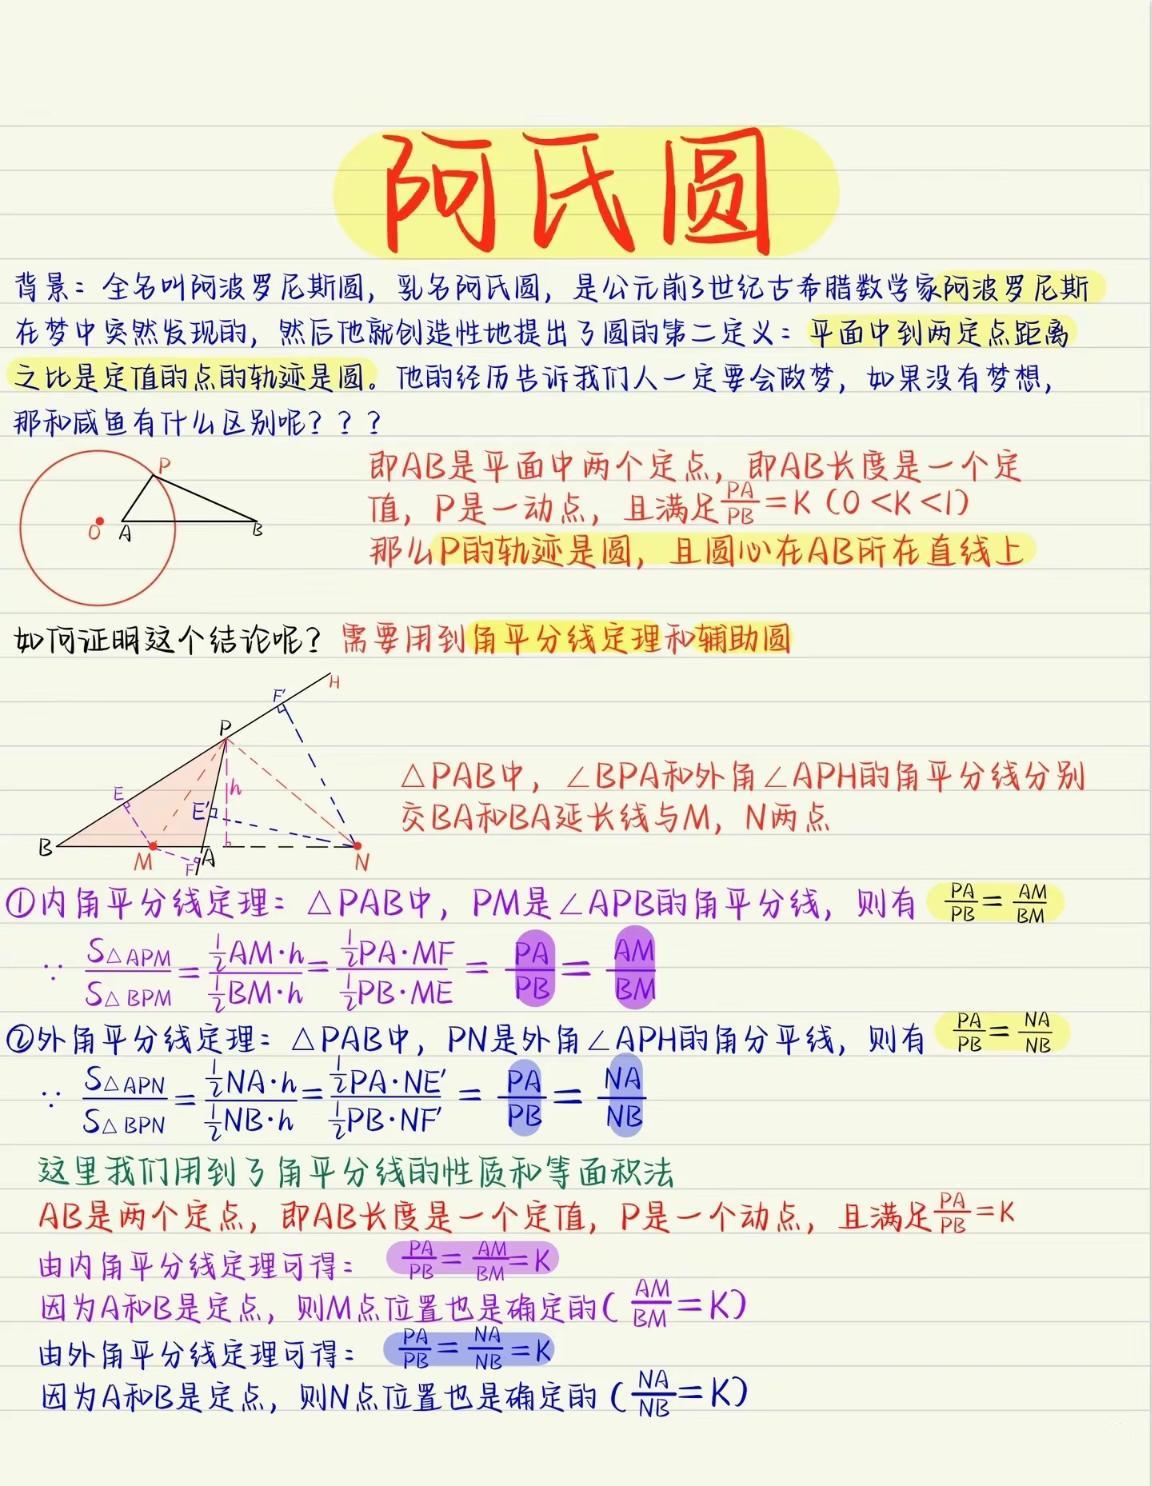 阿氏圆
背景：全名叫阿波罗尼斯圆，乳名阿氏圆，是公元前3世纪古希腊数学家阿波罗尼斯
在梦中突然发现的，然后他就创造性地提出了圆的第二定义：平面中到两定点距离
之比是定值的点的轨迹是圆。他的经历告诉我们人一定要会做梦，如果没有梦想，
那和咸鱼有什么区别呢？？？
P
O A B
即AB是平面中两个定点，即AB长度是一个定
值，P是一动点，且满足PA/PB=K（0<K<1）
那么P的轨迹是圆，且圆心在AB所在直线上
如何证明这个结论呢？需要用到角平分线定理和辅助圆
F' H
P
E E' h
B M F A N
△PAB中，∠BPA和外角∠APH的角平分线分别
交BA和BA延长线与M，N两点
①内角平分线定理：△PAB中，PM是∠APB的角平分线，则有 PA/PB=AM/BM
∵ S△APM/S△BPM=½AM·h/½BM·h=½PA·MF/½PB·ME=PA/PB=AM/BM
②外角平分线定理：△PAB中，PN是外角∠APH的角分平线，则有 PA/PB=NA/NB
∵ S△APN/S△BPN=½NA·h/½NB·h=½PA·NE'/½PB·NF'=PA/PB=NA/NB
这里我们用到了角平分线的性质和等面积法
AB是两个定点，即AB长度是一个定值，P是一个动点，且满足PA/PB=K
由内角平分线定理可得：PA/PB=AM/BM=K
因为A和B是定点，则M点位置也是确定的(AM/BM=K)
由外角平分线定理可得：PA/PB=NA/NB=K
因为A和B是定点，则N点位置也是确定的(NA/NB=K)